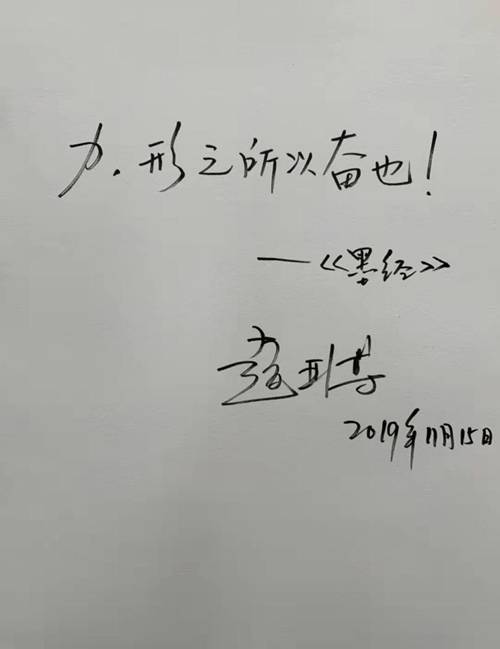 力.形之所以奋也!
—《墨经》
2019年11月15日